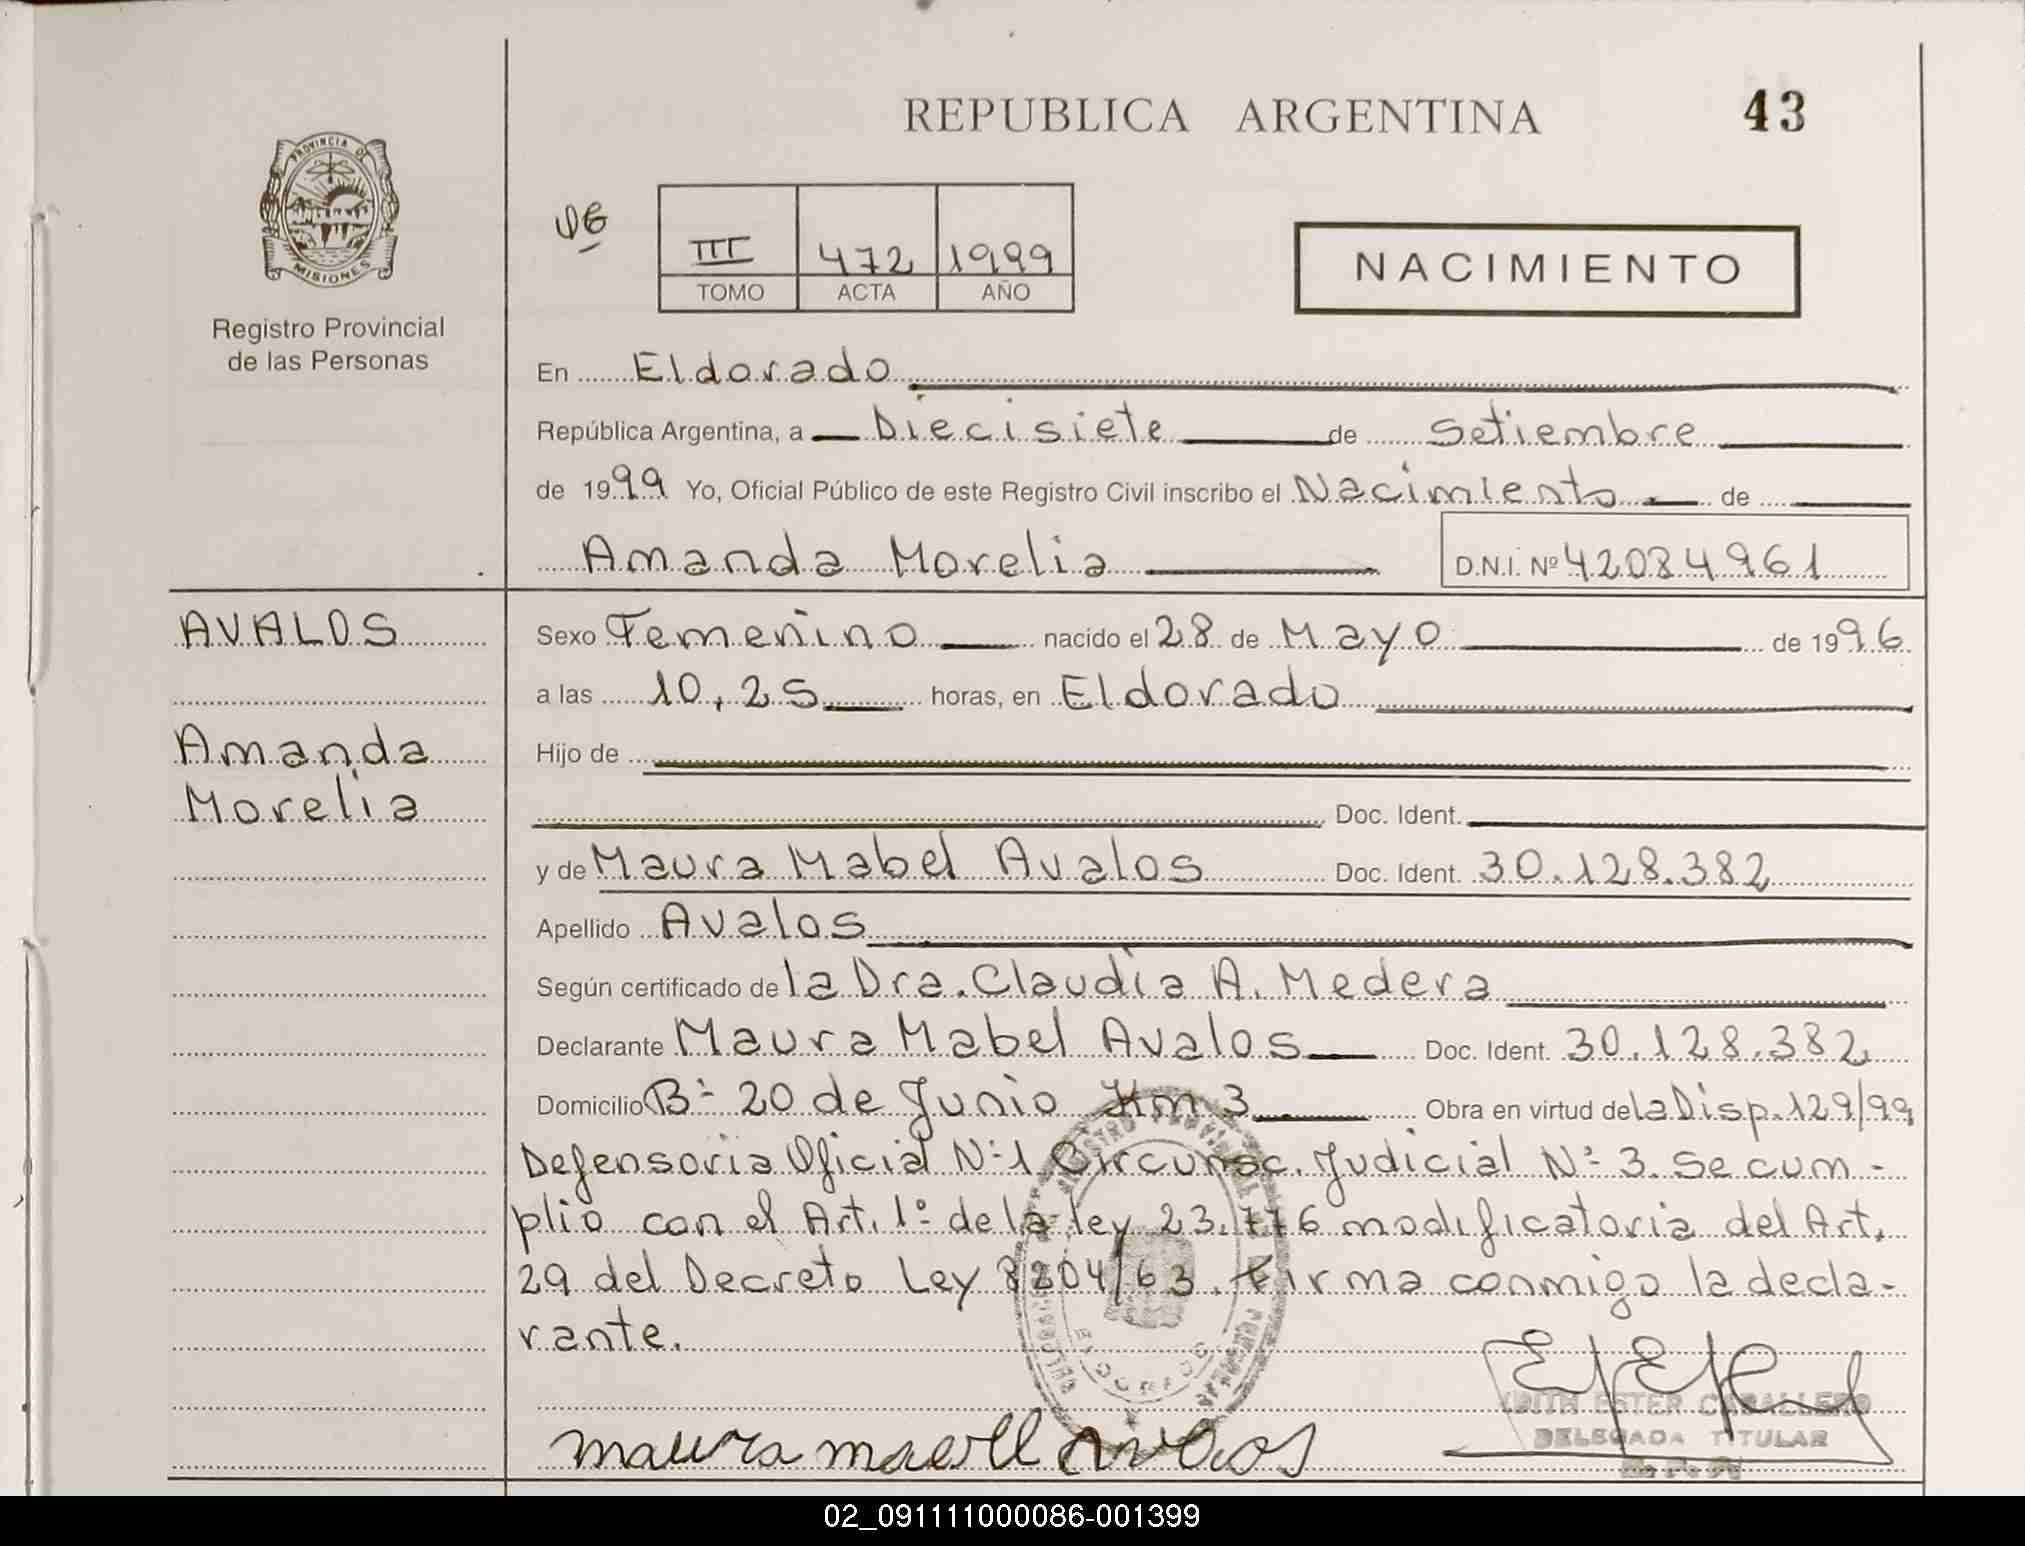 REPUBLICA ARGENTINA
43
PROVINCIA DE
MISIONES
Registro Provincial
de las Personas
III 472 1999
TOMO ACTA AÑO
NACIMIENTO
En Eldorado
República Argentina, a Diecisiete de Setiembre
de 1999 Yo, Oficial Público de este Registro Civil inscribo el Nacimiento de
Amanda Morelia D.N.I. Nº 42084961
AVALOS
Amanda
Morelia
Sexo Femenino nacido el 28 de Mayo de 1996
a las 10,25 horas, en Eldorado
Hijo de
Doc. Ident.
y de Maura Mabel Avalos Doc. Ident. 30.128.382
Apellido Avalos
Según certificado de la Dra. Claudia A. Medera
Declarante Maura Mabel Avalos Doc. Ident. 30.128.382
Domicilio Bº 20 de Junio Km 3 Obra en virtud de la Disp. 129/99
Defensoria Oficial Nº 1 Circunsc. Judicial Nº 3. Se cum-
plio con el Art. 1º de la ley 23.776 modificatoria del Art.
29 del Decreto Ley 8204/63. Firma conmigo la decla-
rante.
ELDORADO
EDITH ESTER CABALLERO
DELEGADA TITULAR
02_091111000086-001399